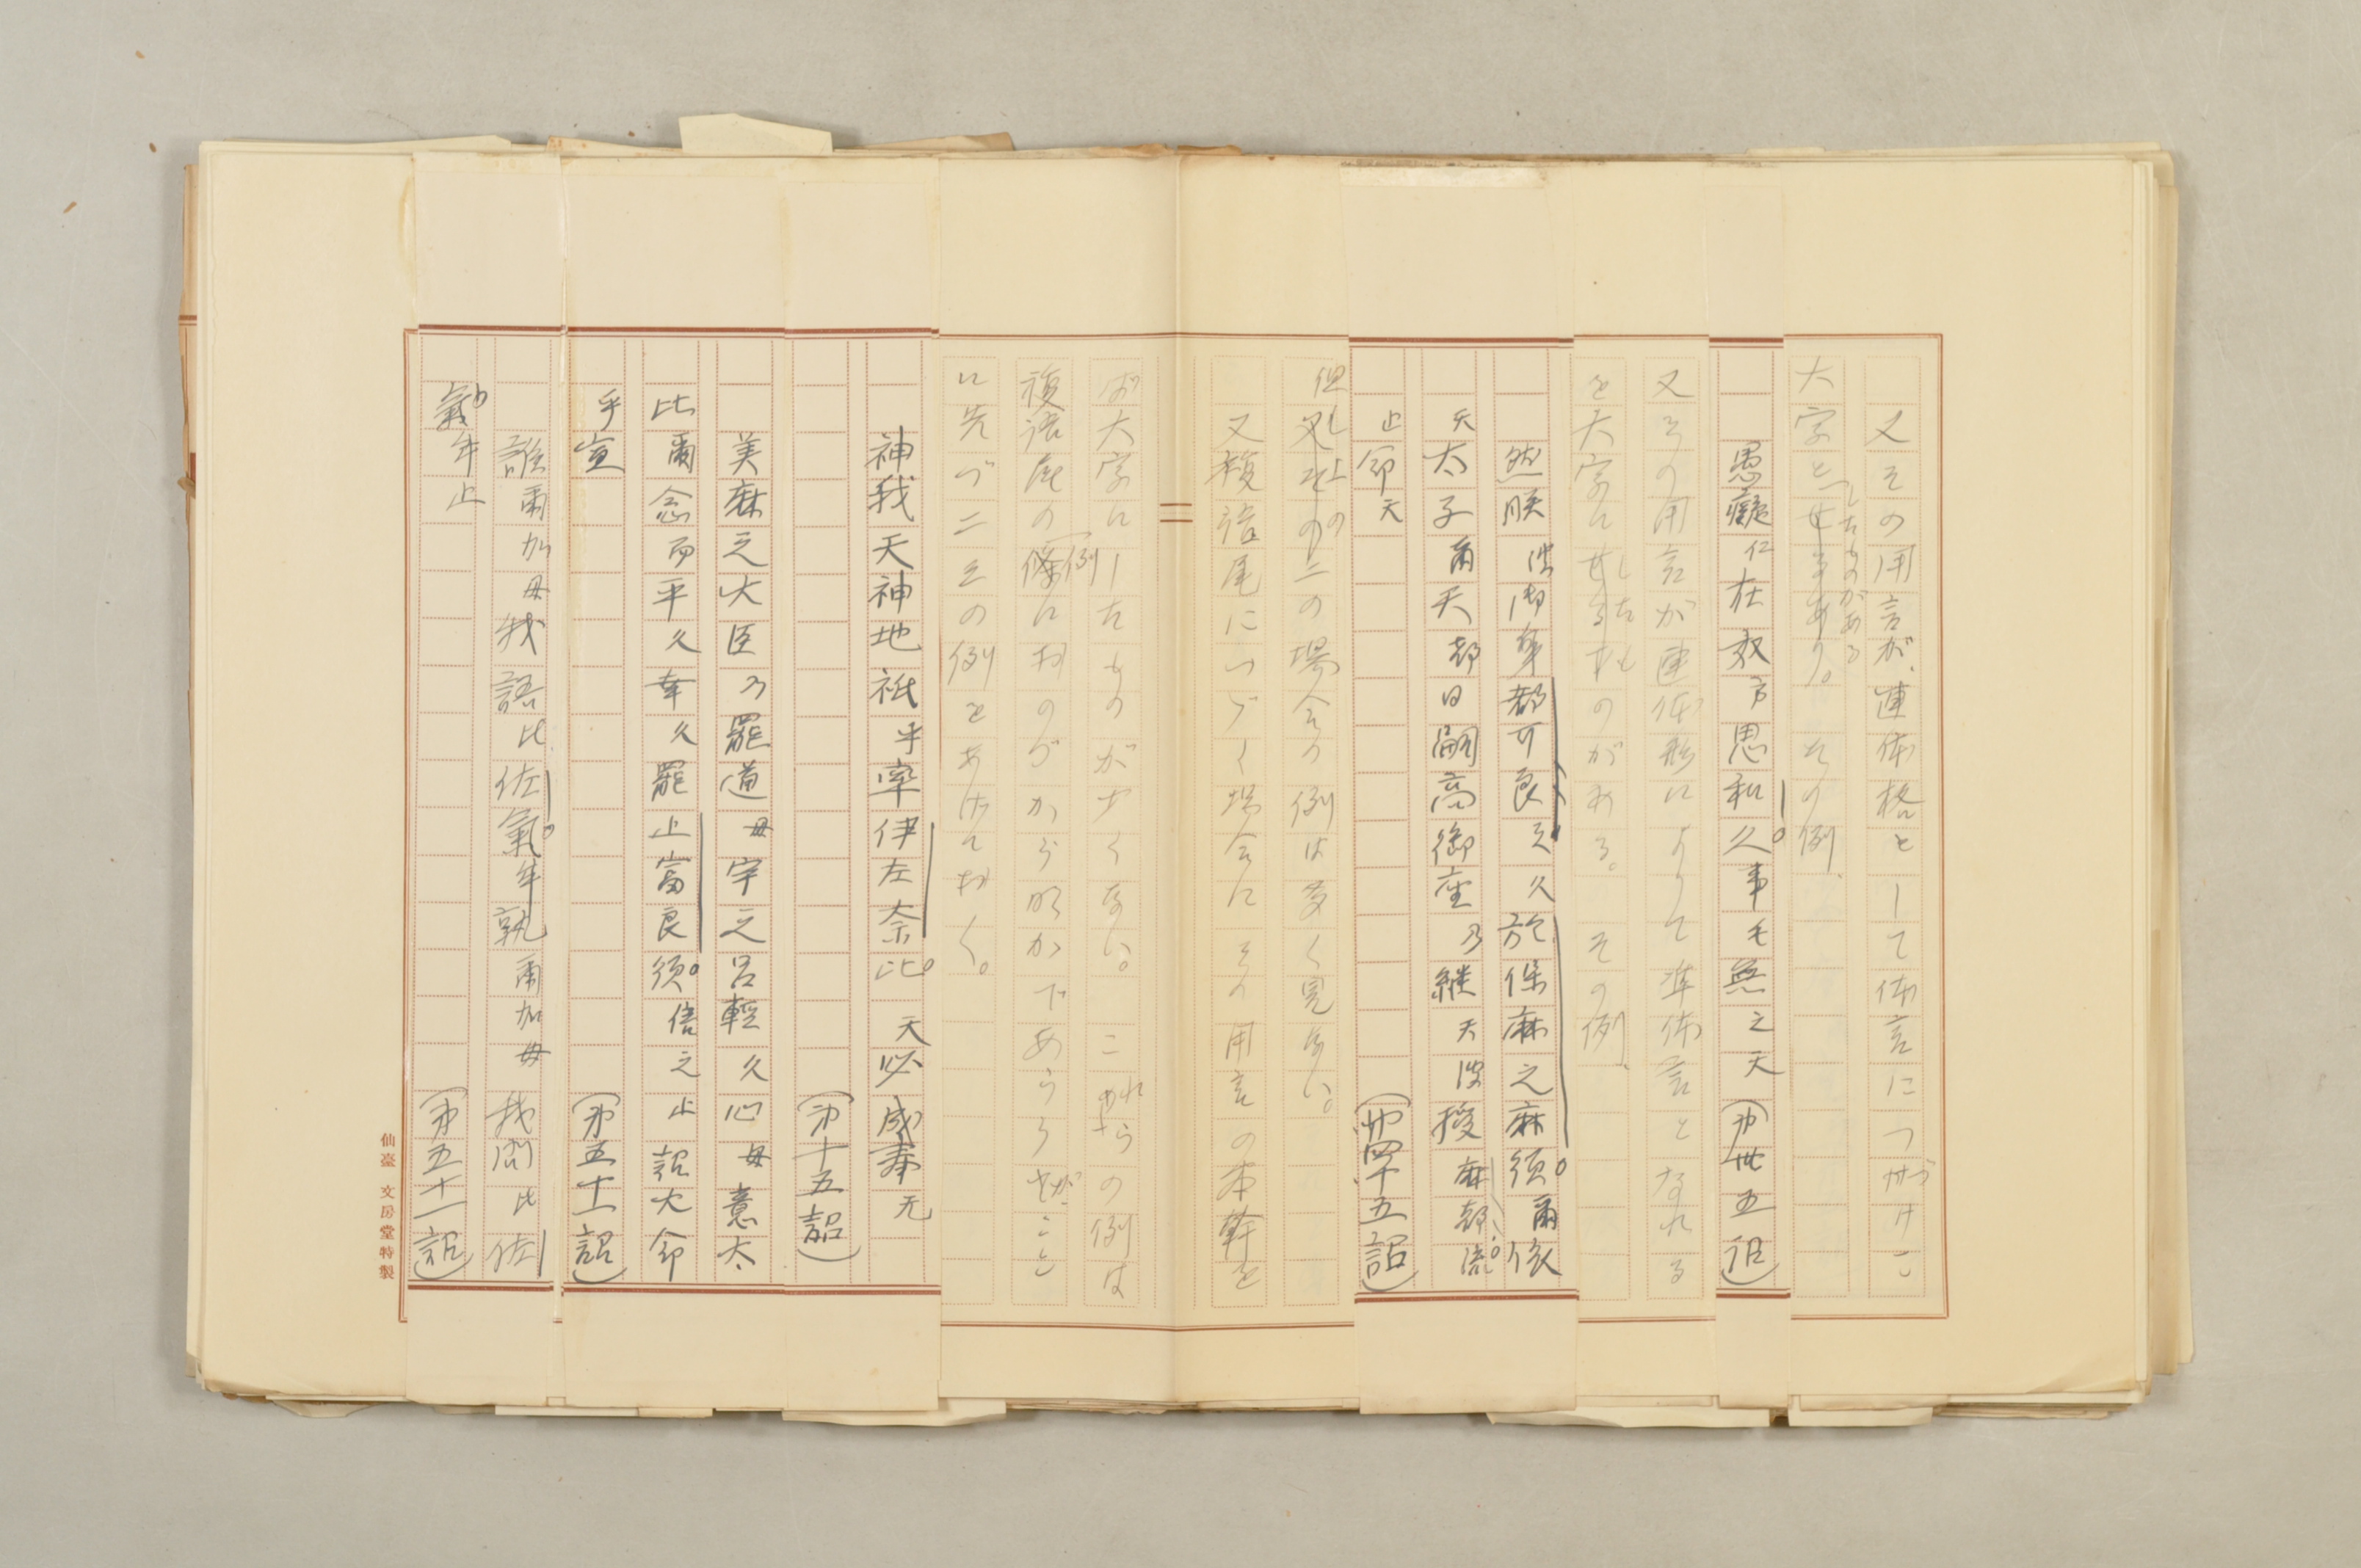 又その用言が、連体格として体言につづけこ
大字としたものがある。その例、
愚癡仁在奴方思和久事毛無之天(第卅五詔)
又その用言が連体形によりて準体言となれる
を大字にしたものがある。その例、
然朕波御身都可良之久於保麻之麻須爾依
天太子爾天都日嗣高御座乃継天波授麻都流
止命天(第四十五詔)
但し上の二の場合の例は多く見ない。
又複語尾につづく場合にその用言の本幹を
ば大字にしたものが少くない。これらの例は
複語尾の條例におのづから明かであらうが、こゝ
に先づ二三の例をあげておく。
神我天神地祇乎率伊左奈比天必成奉无
(第十五詔)
美麻之大臣乃罷道母宇之呂輕久心母意太
比爾念而平久幸久罷止富良須倍之止詔大命
乎宣(第五十一詔)
誰爾加母我語比佐氣牟孰爾加母我問比佐
氣牟止(第五十一詔)
仙臺 文房堂特製